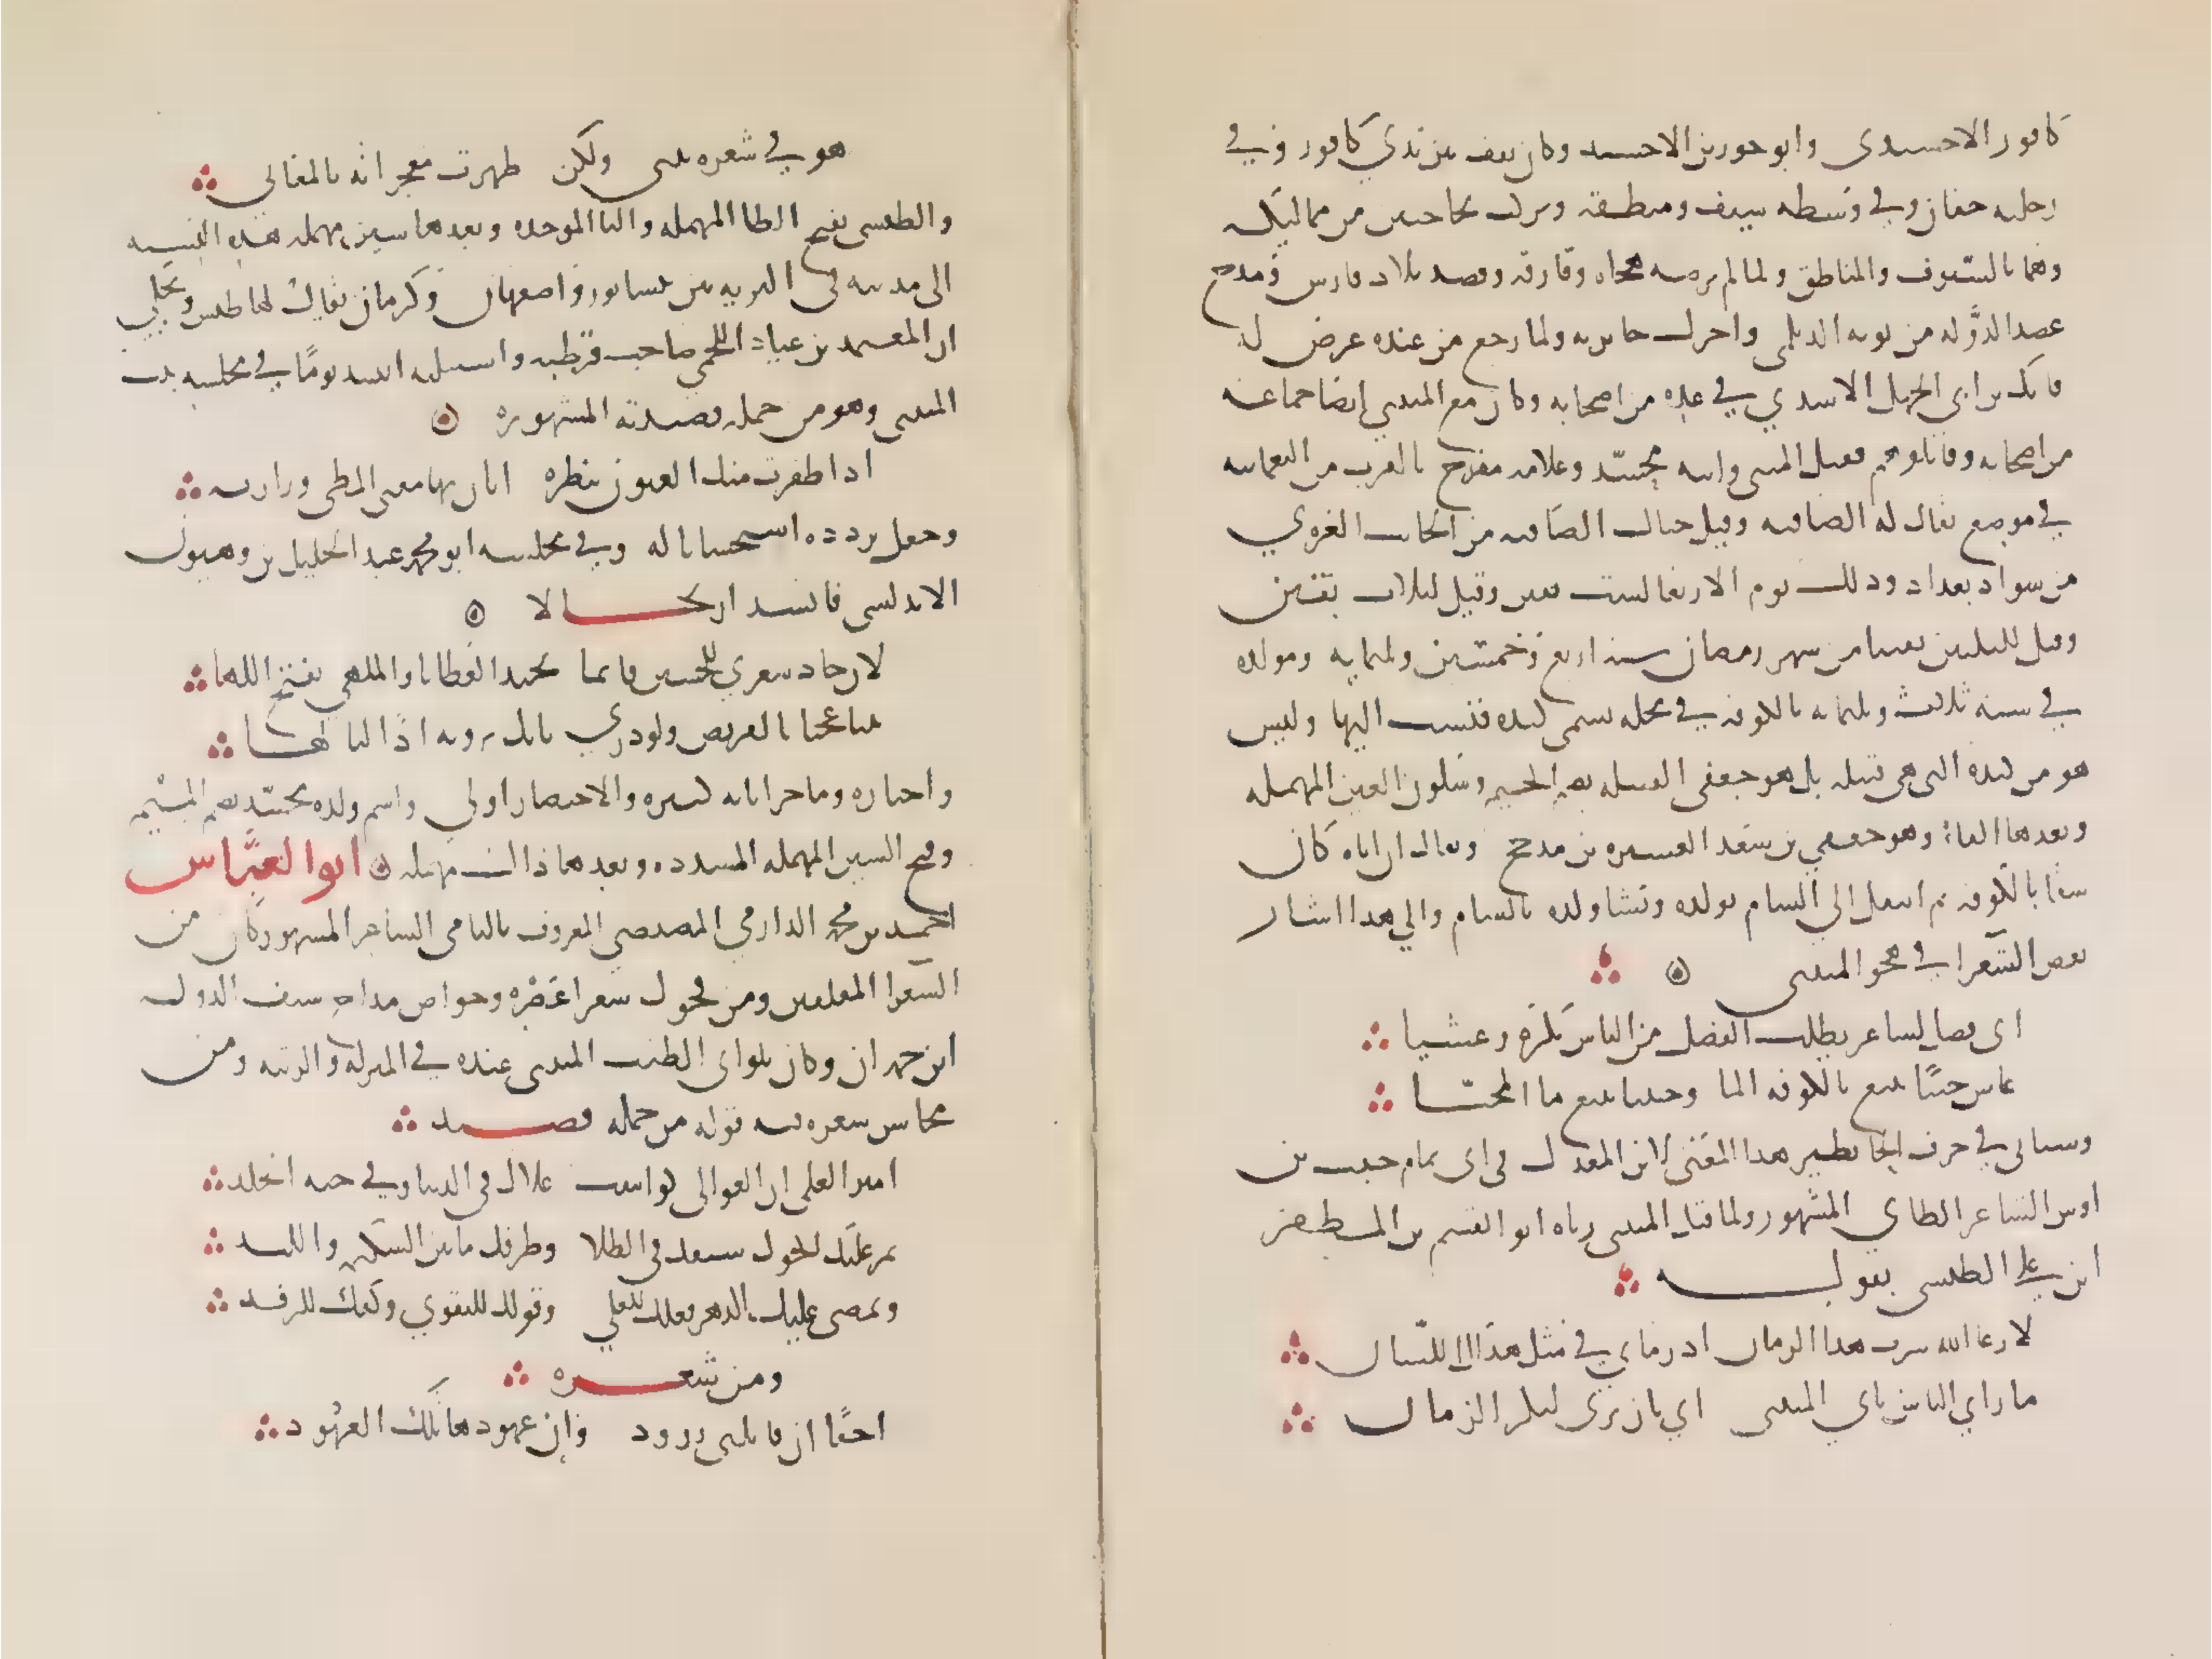 كافور الاخشيدي وابو جور بن الاخشيد وكان يقف بين يدي كافور وفي
رجليه خفان وفي وسطه سيف ومنطقة ويركب بحاجبين من مماليكه
وهما بالسيوف والمناطق ولما لم يرضه هجاه وفارقه وقصد بلاد فارس ومدح
عضد الدولة من بويه الديلمي واجزل جايزته ولما رجع من عنده عرض له
فاتك بن ابي الجهل الاسدي في عدة من اصحابه وكان مع المتنبي ايضا جماعة
من اصحابه وقاتلوهم فقتل المتنبي وابنه محسد وغلامه مفلح بالقرب من النعمانيه
في موضع يقال له الصافيه وقيل حيال الصافيه من الجانب الغربي
من سواد بغداد وذلك يوم الاربعا لست بقين وقيل لثلاث بقين
وقيل لليلتين بقيتا من شهر رمضان سنة اربع وخمسين وثلثمايه ومولده
في سنة ثلاث وثلثمايه بالكوفه في محله تسمى كنده فنسب اليها وليس
هو من كنده التي هي قبيله بل هو جعفي القبيله بضم الجيم وسكون العين المهمله
وبعدها الفاء وهو جعفي بن سعد العشيره بن مذحج ويقال ان اباه كان
سقا بالكوفه ثم انتقل الى الشام بولده ونشا ولده بالشام والي هذا اشار
بعض الشعرا في هجو المتنبي
اي فضل لشاعر يطلب الفضل من الناس بكرة وعشيا
عاش حينا يبيع بالكوفه الما وحينا يبيع ما المحيا
وسياتي في حرف الحا نظير هذا المعنى لابن المعذل في ابي تمام حبيب بن
اوس الشاعر الطاي المشهور ولما قتل المتنبي رثاه ابو القسم بن المظفر
ابن علي الطبسي بقوله
لا رعا الله سرب هذا الزمان اذ رماي في مثل هذا اللسان
ما راي الناس ثاي المتنبي اي ثان يرى لبكر الزمان
هو في شعره نبي ولكن ظهرت معجزاته بالمعاني
والطبسي بفتح الطا المهمله والبا الموحده وبعدها سين مهمله هذه النسبه
الى مدينه في البريه بين نيسابور واصفهان وكرمان يقال لها طبس ويحكي
ان المعتمد بن عباد اللخمي صاحب قرطبه واشبيليه انشد يوما في مجلسه بيت
المتنبي وهو من جمله قصيدته المشهوره
اذا ظفرت منك العيون بنظره اثاب بها معيي المطي ورازمه
وجعل يردده استحسانا له وفي مجلسه ابو محمد عبد الجليل بن وهبون
الاندلسي فانشد ارتجالا
لان جاد شعر بن الحسين فانما تجيد العطايا واللهى تفتح اللها
تنبا عجبا بالقريض ولو دري بانك تروي اذا لتالها
واخباره وماجراياته كثيره والاختصار اولي واسم ولده محسد بضم الميم
وفتح السين المهمله المشدده وبعدها دال مهمله ابو العباس
احمد بن محمد الدارمي المصيصي المعروف بالنامي الشاعر المشهور كان من
الشعرا المفلقين ومن فحول شعرا عصره وخواص مداح سيف الدوله
ابن حمدان وكان تلو ابي الطيب المتنبي عنده في المنزله والرتبه ومن
محاسن شعره فيه قوله من جمله قصيد
امير العلى ان العوالي كواسب علاك في الدنيا وفي جنه الخلد
يمر عليك الحول سيفك في الطلا وطرفك ما بين الشكيمه واللبد
ويمضي عليك الدهر فعلك للعلي وقولك للتقوي وكفك للرفد
ومن شعره
احقا ان قاتلتي زرود وان عهودها تلك العهود